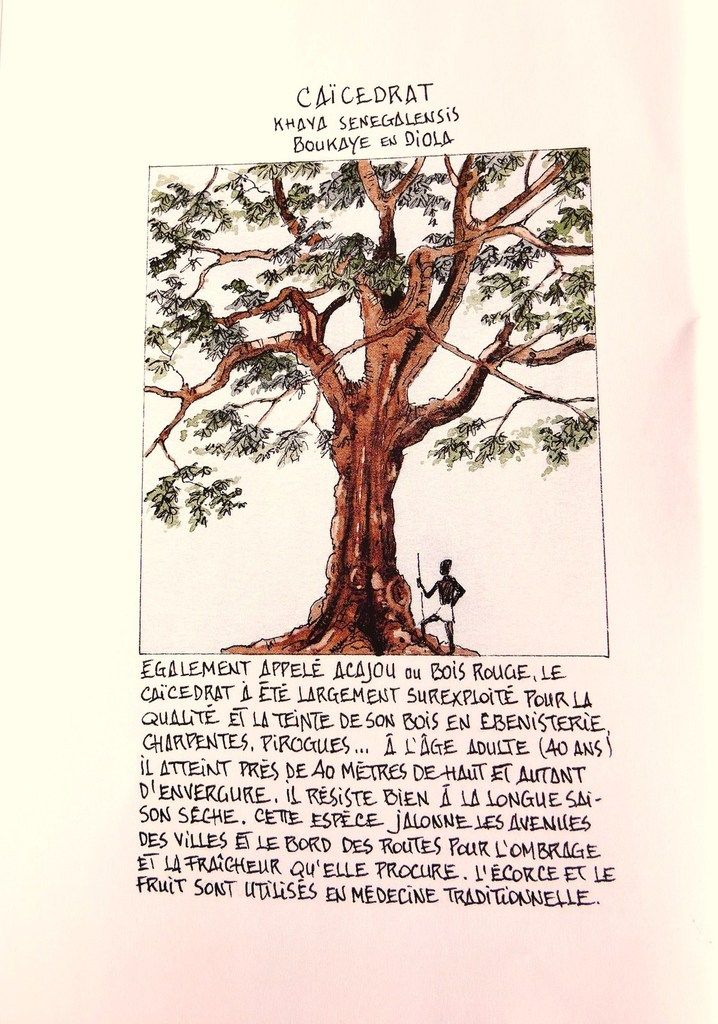 CAÏCEDRAT
KHAYA SENEGALENSIS
BOUKAYE EN DIOLA
EGALEMENT APPELÉ ACAJOU OU BOIS ROUGE, LE
CAÏCEDRAT À ÉTÉ LARGEMENT SUREXPLOITÉ POUR LA
QUALITÉ ET LA TEINTE DE SON BOIS EN EBENISTERIE,
CHARPENTES, PIROGUES... À L'ÂGE ADULTE (40 ANS)
IL ATTEINT PRÈS DE 40 MÈTRES DE HAUT ET AUTANT
D'ENVERGURE. IL RÉSISTE BIEN À LA LONGUE SAI-
SON SÈCHE. CETTE ESPÈCE JALONNE LES AVENUES
DES VILLES ET LE BORD DES ROUTES POUR L'OMBRAGE
ET LA FRAÎCHEUR QU'ELLE PROCURE. L'ÉCORCE ET LE
FRUIT SONT UTILISÉS EN MÉDECINE TRADITIONNELLE.